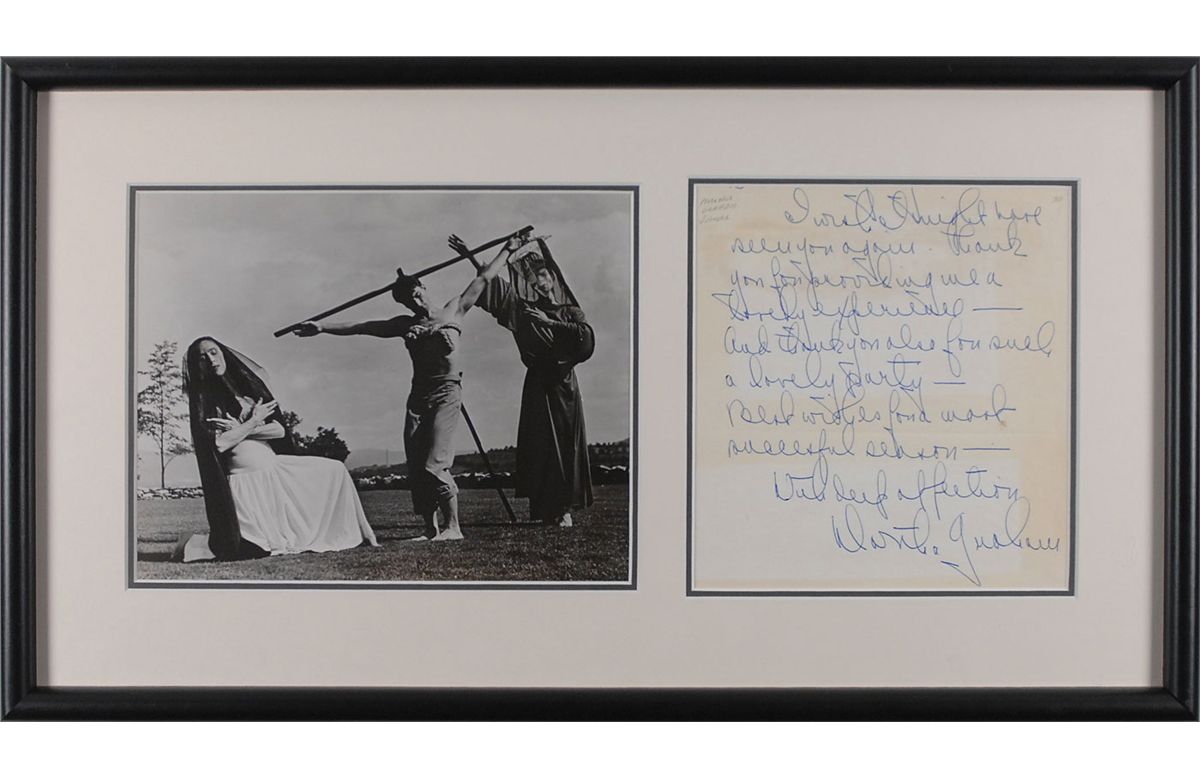 MARTHA
GRAHAM
DANCER
I wish I might have
seen you again. Thank
you for providing me a
lovely experience —
And thank you also for such
a lovely party —
Best wishes for a most
successful season —
With deep affection
Martha Graham